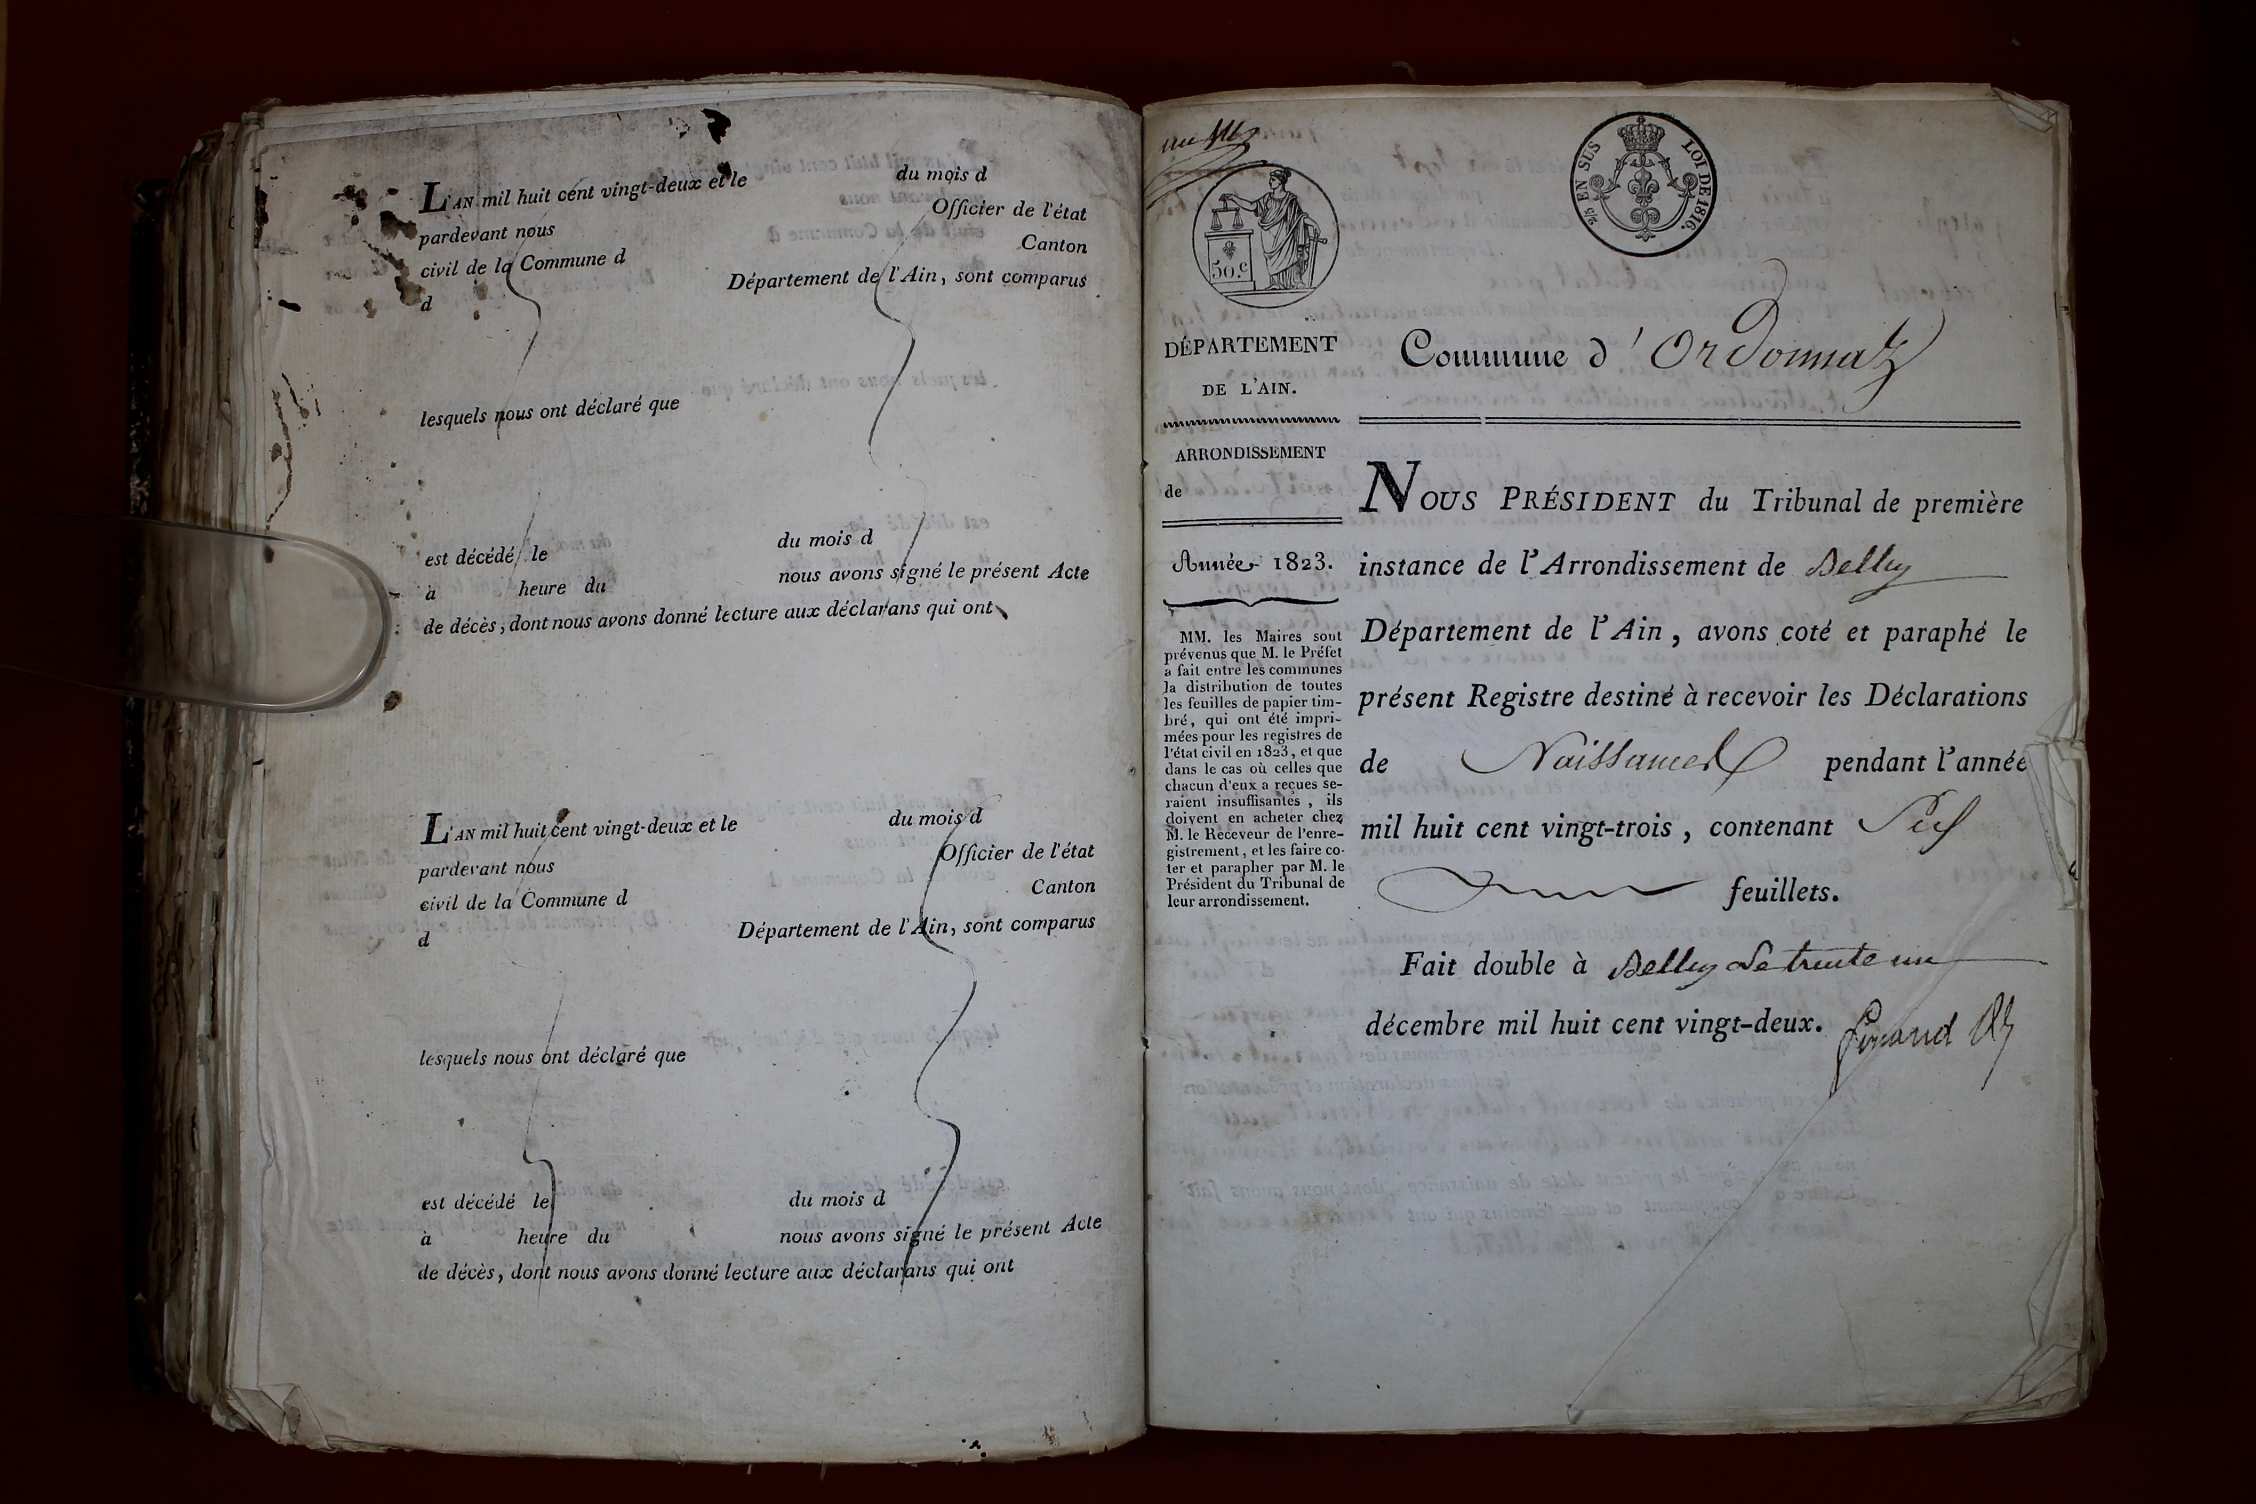 L'AN mil huit cent vingt-deux et le du mois d
pardevant nous Officier de l'état
civil de la Commune d Canton
d Département de l'Ain, sont comparus
lesquels nous ont déclaré que
est décédé le du mois d
à heure du nous avons signé le présent Acte
de décès, dont nous avons donné lecture aux déclarans qui ont
L'AN mil huit cent vingt-deux et le du mois d
pardevant nous Officier de l'état
civil de la Commune d Canton
d Département de l'Ain, sont comparus
lesquels nous ont déclaré que
est décédé le du mois d
à heure du nous avons signé le présent Acte
de décès, dont nous avons donné lecture aux déclarans qui ont
50.c
EN SUS LOI DE 1816.
DÉPARTEMENT
DE L'AIN.
ARRONDISSEMENT
de
Année 1823.
MM. les Maires sont
prévenus que M. le Préfet
a fait entre les communes
la distribution de toutes
les feuilles de papier tim-
bré, qui ont été impri-
mées pour les registres de
l'état civil en 1823, et que
dans le cas où celles que
chacun d'eux a reçues se-
raient insuffisantes, ils
doivent en acheter chez
M. le Receveur de l'enre-
gistrement, et les faire co-
ter et parapher par M. le
Président du Tribunal de
leur arrondissement.
Commune d'Ordonnaz
NOUS PRÉSIDENT du Tribunal de première
instance de l'Arrondissement de Belley
Département de l'Ain, avons coté et paraphé le
présent Registre destiné à recevoir les Déclarations
de Naissances pendant l'année
mil huit cent vingt-trois, contenant
feuillets.
Fait double à Belley le trente un
décembre mil huit cent vingt-deux.